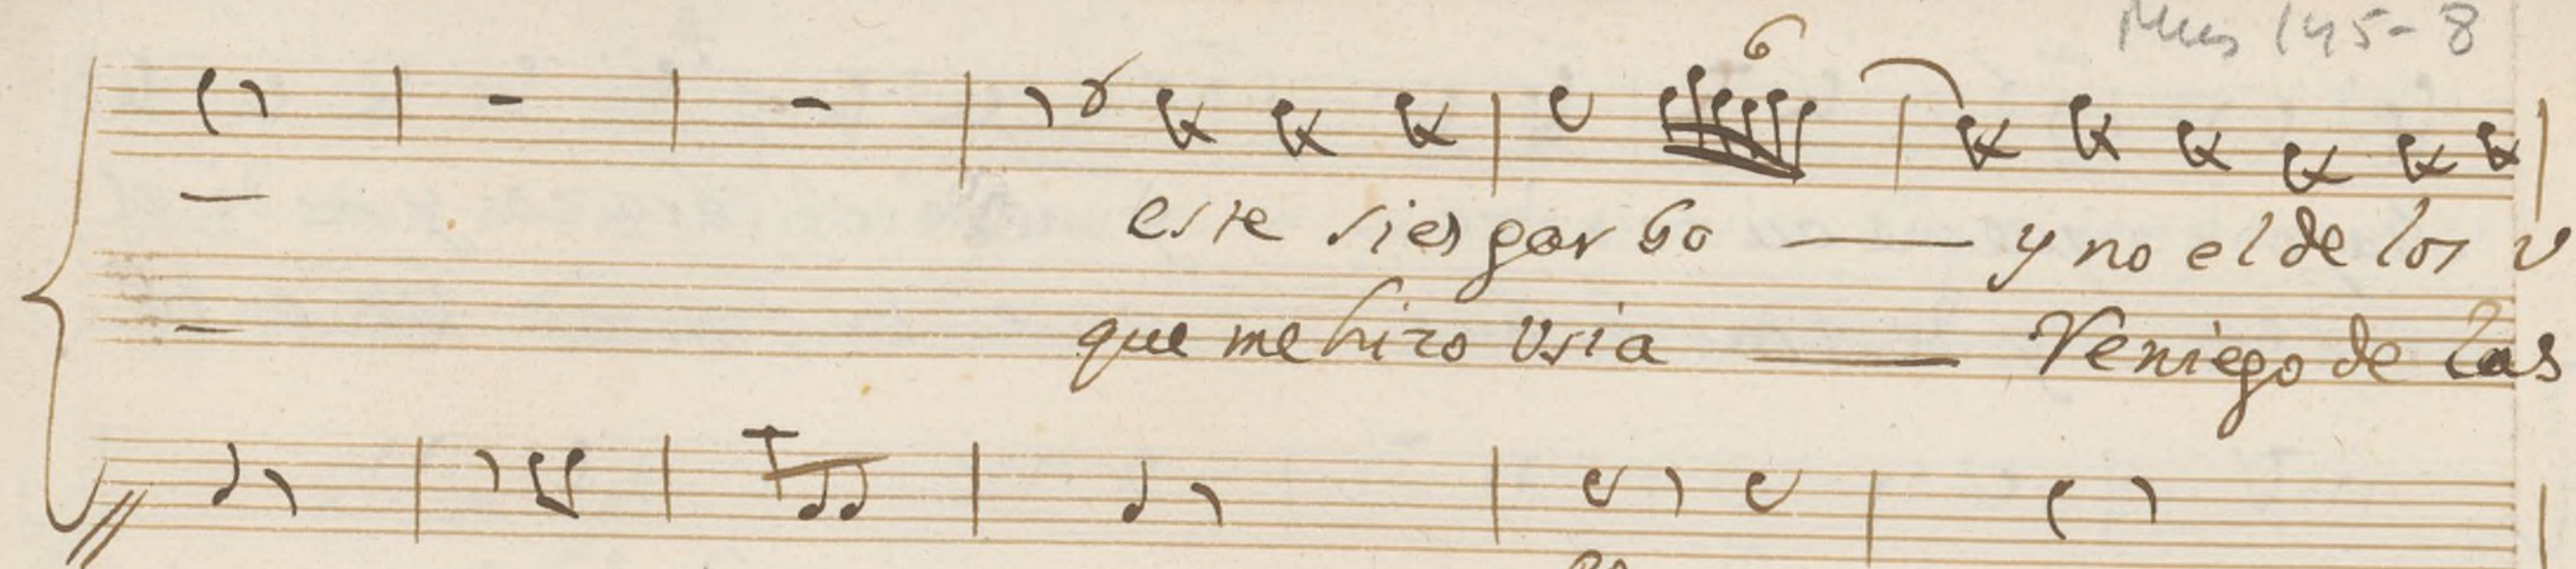 Mus 145-8
6
este sies garbo — y no el de los
que me hizo Usia — Reniego de las